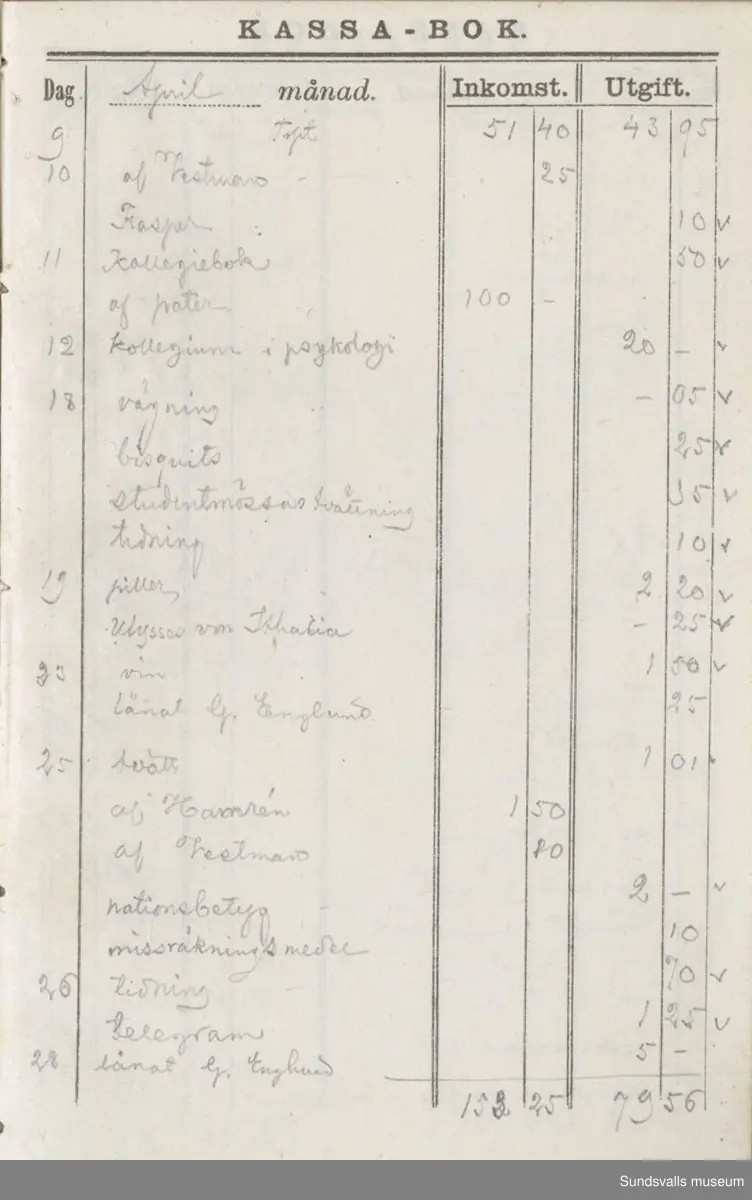 KASSA-BOK.
Dag. April månad. Inkomst. Utgift.
9 Tpt 51 40 43 95
10 af Vestman – 25
Kasper 10 v
11 Kollegiebok 50 v
af pater 100 –
12 kollegium i psykologi 20 – v
18 vägning – 05 v
bisquits 25 v
studentmössas tvättning 35 v
tidning 10 v
19 piller 2 20 v
Ulysses von Ithacia – 25 v
23 vin 1 50 v
lånat G. Englund 25
25 tvätt 1 01
af Hamrén 1 50
af Vestman 80
nationsbetyg – 2 – v
missräkningsmedel 10
26 tidning 70 v
telegram 1 25 v
28 lånat G. Englund 5 –
153 25 79 56
Sundsvalls museum